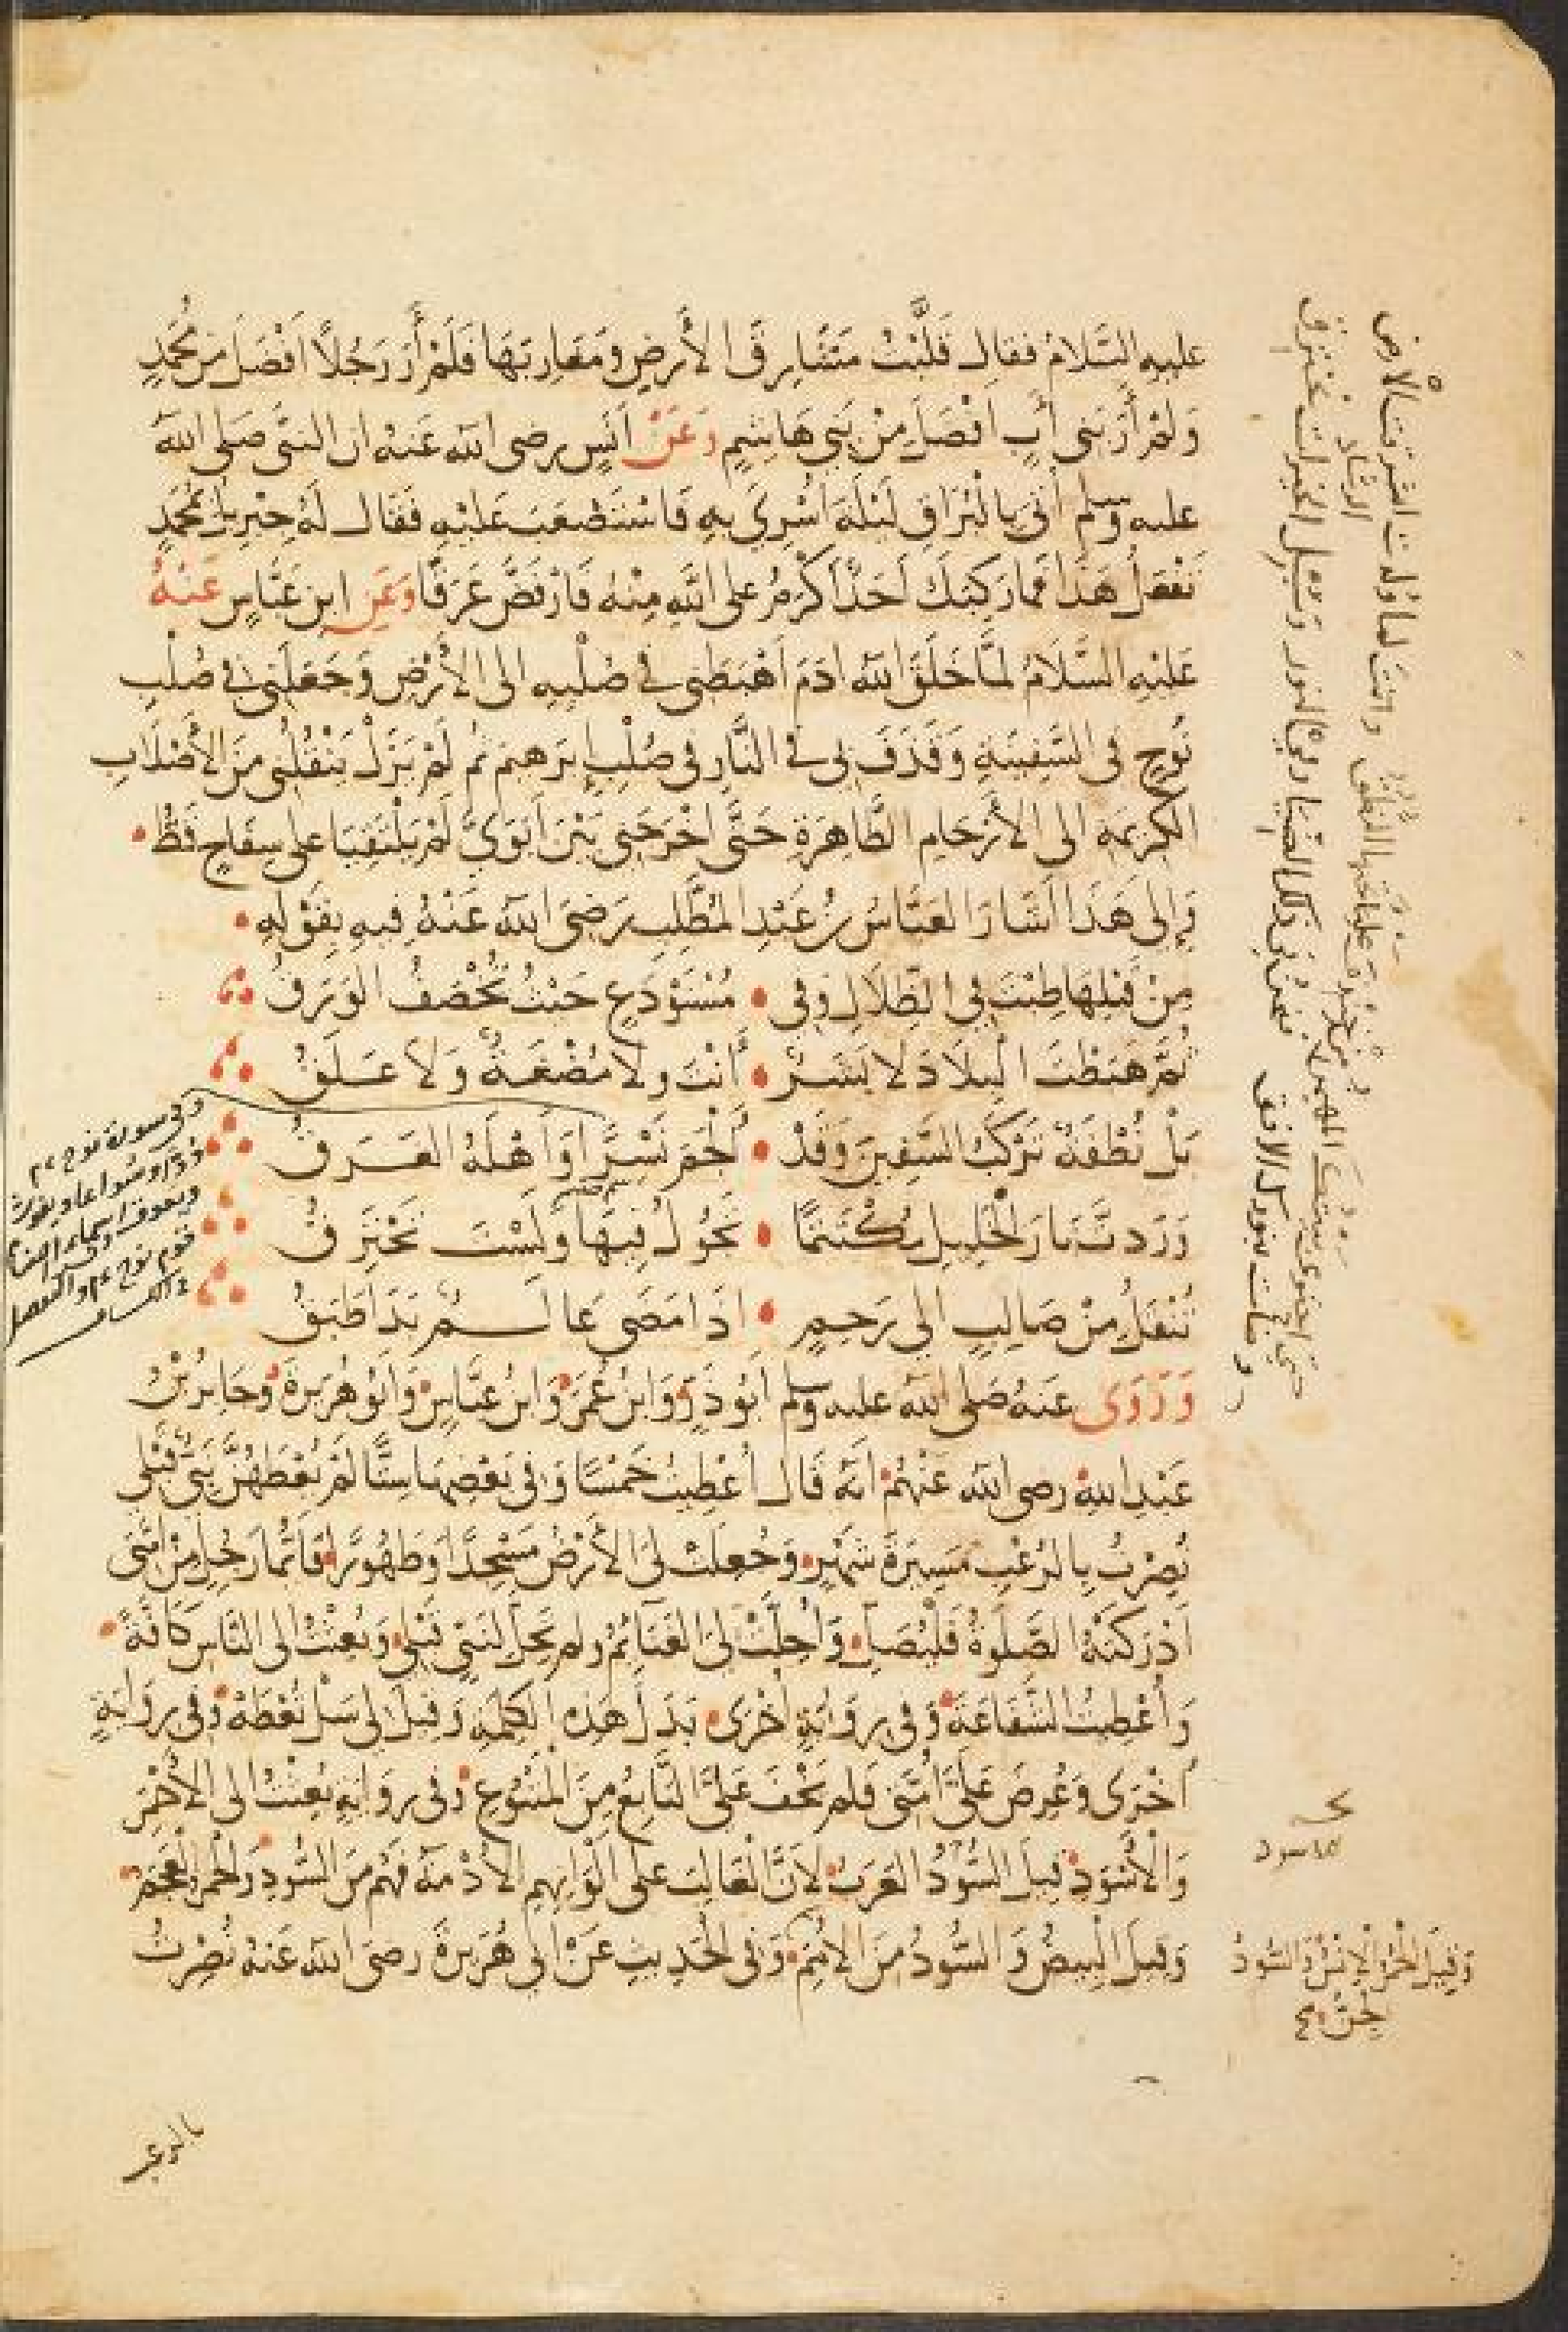 عليه السَّلامُ فقال قَلَّبْتُ مَشَارِقَ الأَرضِ ومَغارِبَهَا فَلَمْ أَرَ رَجُلاً اَفْضَلَ مِنْ مُحَمَّدٍ
وَلَمْ أَرَ بَنى أَبٍ اَفْضَلَ مِنْ بَنِي هَاشِمٍ وَعَنْ اَنَسٍ رضى الله عَنهُ ان النبىّ صَلى الله
عليه وسلم أُتىَ بِالْبُرَاقِ لَيْلَةَ اُسْرِيَ بِهِ فَاسْتَصْعَبَ عَلَيْهِ فَقَال لَهُ جِبْرِيلُ بِمُحَمَّدٍ
تَفْعَلُ هَذَا فَمَا رَكِبَكَ اَحَدٌ اَكْرَمُ على اللهِ مِنْهُ فَارْفَضَّ عَرَقًا وَعَنِ ابنِ عَبَّاسٍ عَنْهُ
عَلَيْهِ السَّلَامُ لَمَّا خَلَقَ اللهُ ادَمَ اَهْبَطَنى في صُلْبِهِ الى الأَرْضِ وَجَعَلَنى في صُلْبِ
نُوحٍ فى السَّفِينَةِ وَقَذَفَ بى في النَّارِ فى صُلْبِ إبرَهِيمَ ثم لَمْ يَزَلْ يَنْقُلُنى مِنَ الأَصْلَابِ
الكَرِيمَةِ الى الأَرْحَامِ الطَّاهِرَةِ حَتَّى اَخْرَجَنى بَيْنَ اَبَوَيَّ لَمْ يَلْتَقِيَا على سِفَاحٍ قَطُّ
وَإِلى هَذَا اَشَارَ العَبَّاسُ بْنُ عَبْدِ المُطَّلِبِ رَضِىَ الله عَنْهُ فِيهِ بِقَوْلِهِ
مِنْ قَبْلِهَا طِبْتَ فِي الظِّلَالِ وَفِي • مُسْتَوْدَعٍ حَيْثُ يُخْصَفُ الوَرَقُ
ثُمَّ هَبَطْتَ الْبِلَادَ لَا بَشَرٌ • أَنْتَ وَلَا مُضْغَةٌ وَلَا عَلَقُ
بَلْ نُطْفَةٌ تَرْكَبُ السَّفِينَ وَقَدْ • أَلْجَمَ نَسْرًا وَاَهْلَهُ الغَرَقُ
وَرَدتَّ نَارَ الْخَلِيلِ مُكْتَتَمًا • تَجُولُ فِيهَا وَلَسْتَ تَحْتَرِقُ
تُنْقَلُ مِنْ صَالِبٍ الى رَحِمٍ • اِذَا مَضَى عَالَمٌ بَدَا طَبَقُ
وَرَوَى عَنهُ صَلى الله عليه وسلم اَبُو ذَرٍّ وَابنُ عُمَرَ وَابنُ عَبَّاسٍ وَاَبُو هُرَيرَةَ وَجَابِرُ بْنُ
عَبْدِ اللهِ رضى الله عَنْهُمْ اَنَّه قَالَ اُعْطِيتُ خَمْسًا وَفى بَعْضِهَا سِتًّا لَمْ يُعْطَهُنَّ نَبِىٌّ قَبْلى
نُصِرْتُ بِالرُّعْبِ مَسِيرَةَ شَهْرٍ وَجُعِلَتْ لىَ الأَرْضُ مَسْجِدًا وَطَهُورًا فَاَيُّمَا رَجُلٍ مِنْ اُمَّتى
اَدْرَكَتْهُ الصَّلَوةُ فَلْيُصَلِّ وَاُحِلَّتْ لىَ الغَنَائِمُ ولم تَحِلَّ لِنَبِيٍّ قَبْلى وَبُعِثْتُ الى النَّاسِ كَافَّةً
وَاُعْطِيتُ الشَّفَاعَةَ وَفى رِوَايَةٍ اُخْرَى بَدَلَ هَذِهِ الكَلِمَةِ وَقِيلَ لى سَلْ تُعْطَهْ وَفى رِوَايَةٍ
اُخْرَى وَعُرِضَ عَلَىَّ اُمَّتى فَلم يَخْفَ عَلَىَّ التَّابِعُ مِنَ الْمَتْبُوعِ وَفى رِوَايَةٍ بُعِثْتُ الى الاَحْمَرِ
وَالْاَسْوَدِ قِيلَ السُّودُ العَرَبُ لاَنَّ الْغَالِبَ على اَلْوَانِهِم الأُدْمَةُ فَهُم مِنَ السُّودِ وَالحُمرُ العَجَمُ
وَقِيلَ الْبِيضُ وَالسُّودُ مِنَ الاُمَمِ وَفى الحَدِيثِ عَنْ اَبى هُرَيرَةَ رضى الله عَنهُ نُصِرْتُ
وَقِيلَ الحُمْرُ الْاِنْسُ وَالسُّودُ
الجِنُّ
وانتَ لما وُلدتَ اشرقت الأرض
فنحن في ذلك الضياء وفي النور
وفي سورة نوح
قوم نوح
بالرعب